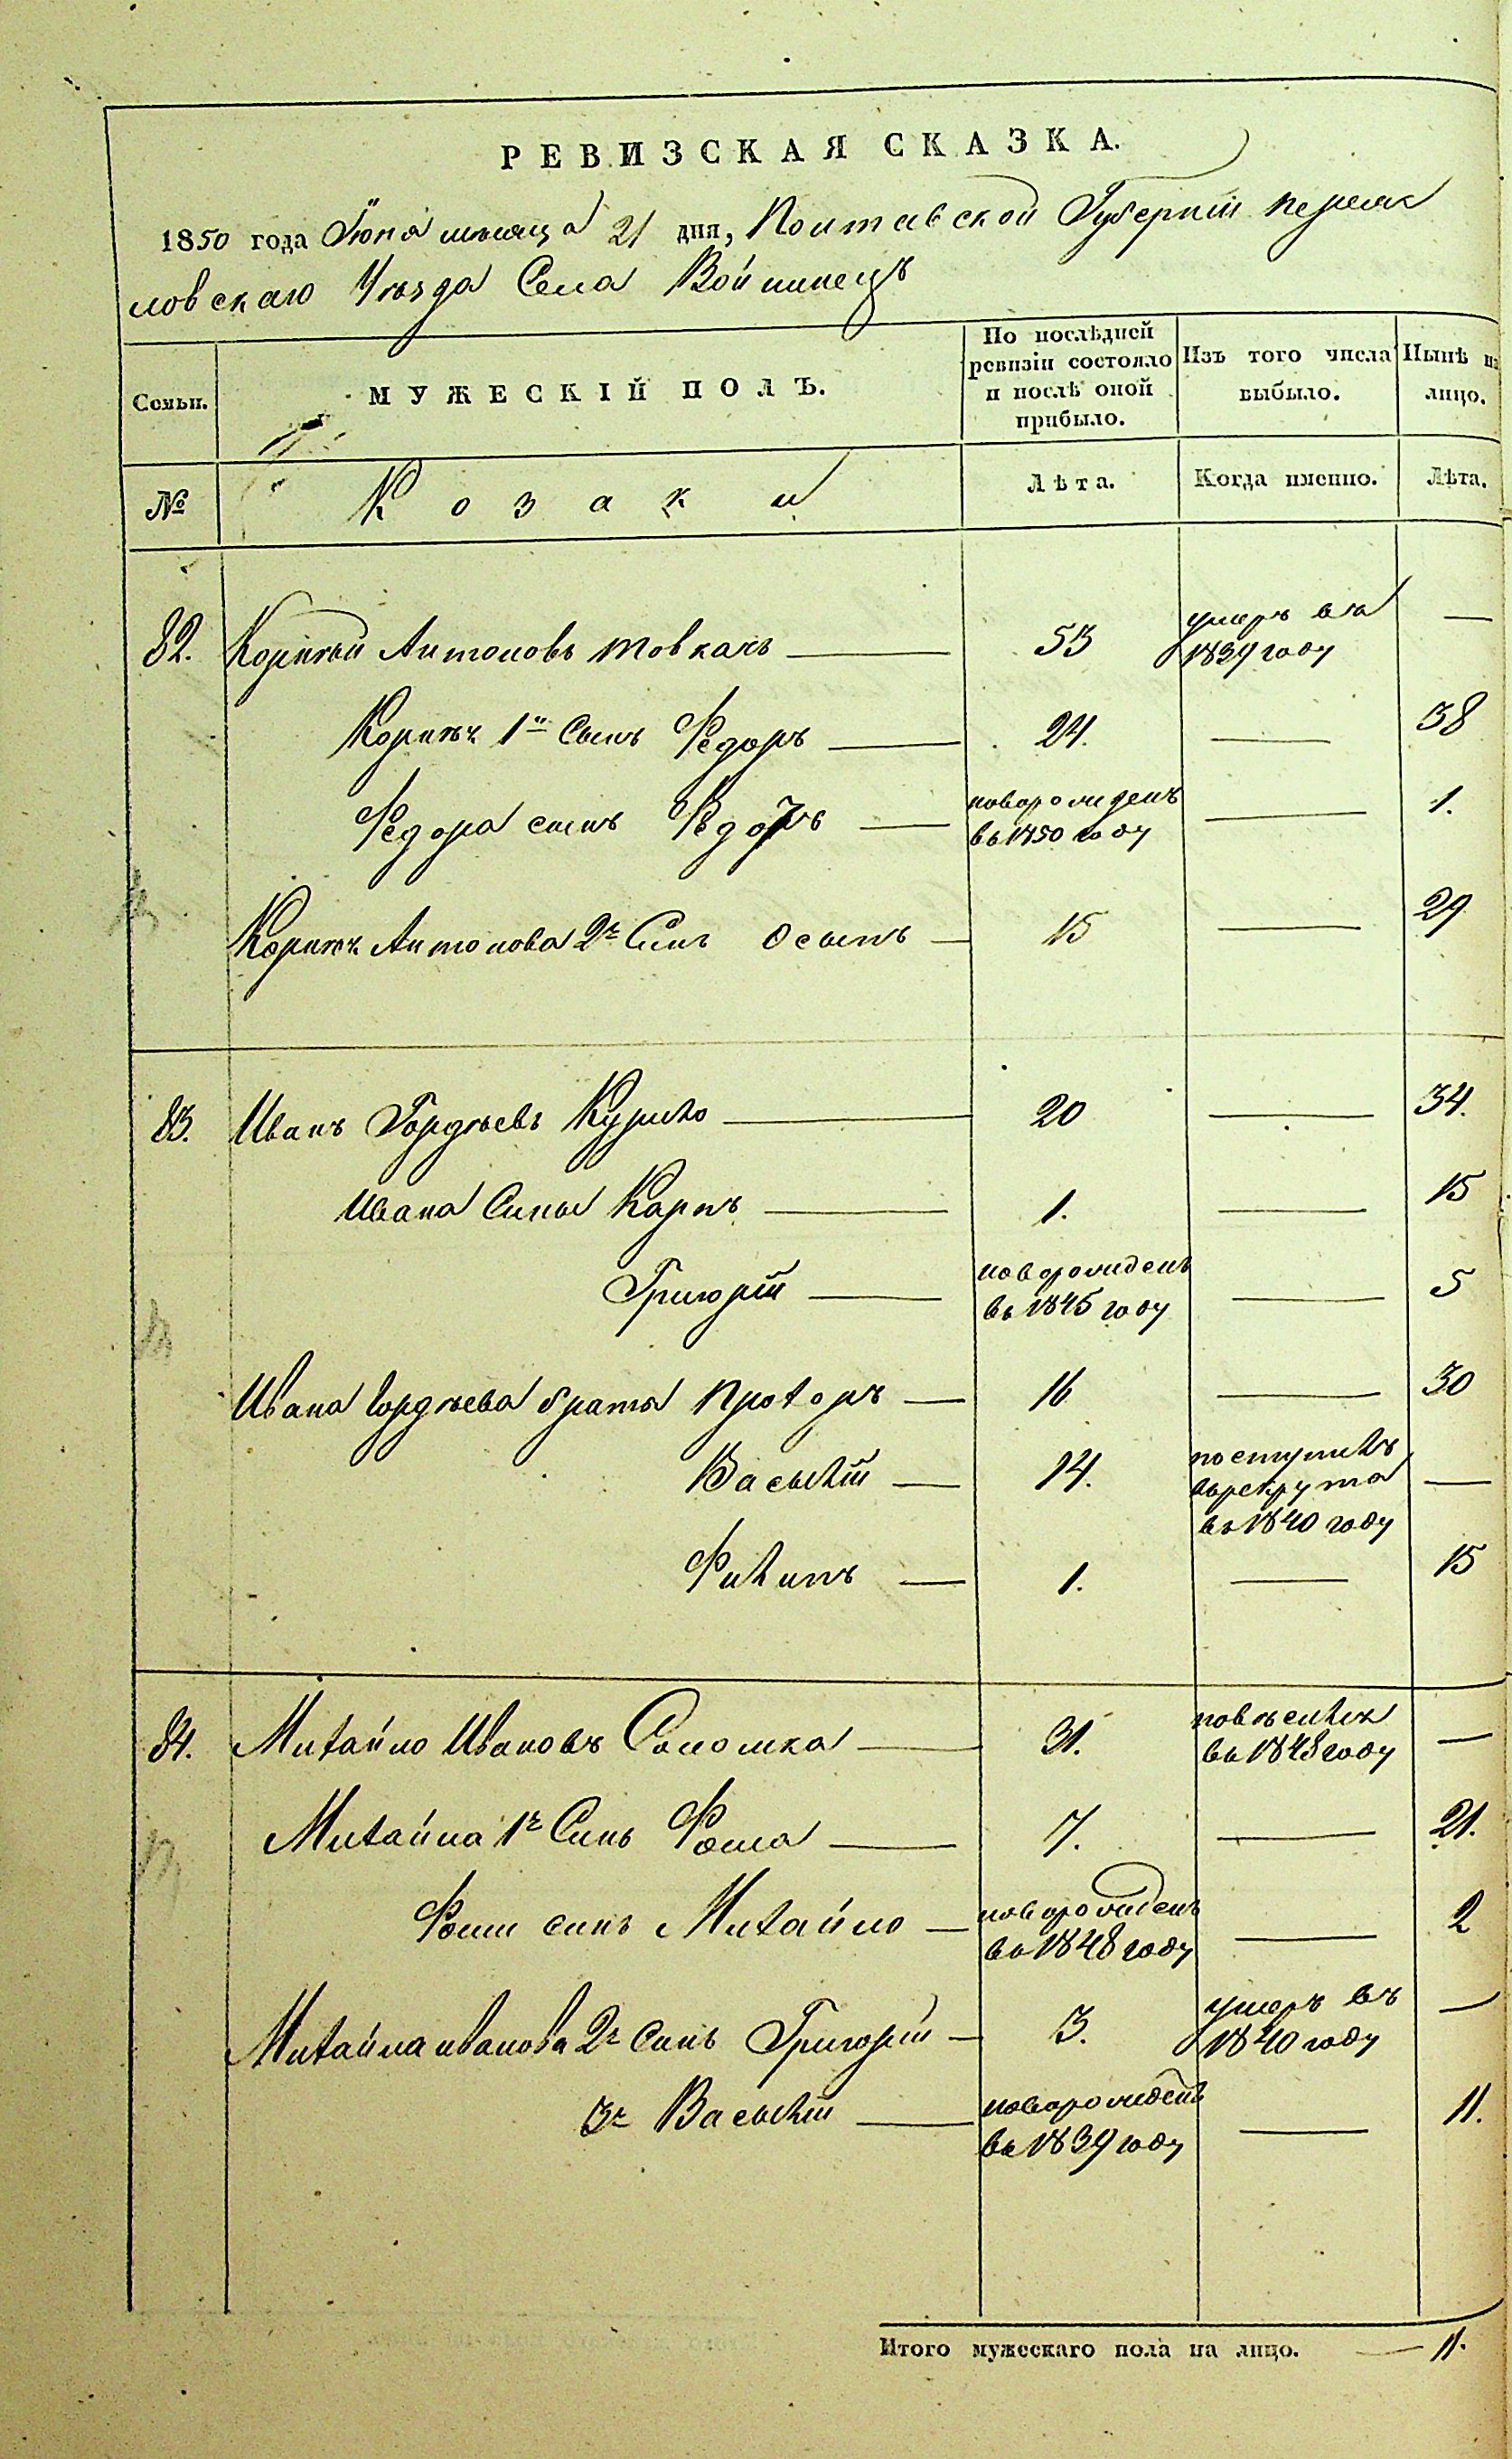 РЕВИЗСКАЯ СКАЗКА.
1850 года Іюня мѣсяца 21 дня, Полтавской Губерніи Переяс
ловскаго Уѣзда Села Войтинецъ
Семьи.
МУЖЕСКІЙ ПОЛЪ.
По послѣдней
ревизіи состояло
и послѣ оной
прибыло.
Изъ того числа
выбыло.
Нынѣ на
лицо.
№
Козаки
Лѣта.
Когда именно.
Лѣта.
82. Корнѣй Антоновъ Товкачъ 53 умеръ въ
1839 году —
Корнѣя 1й Сынъ Федоръ 24. — 38
Федора сынъ Федоръ новорожденъ
въ 1850 году — 1.
Корнѣя Антонова 2й Синъ Осыпъ 15 — 29
83. Иванъ Гордѣевъ Курило 20 — 34.
Ивана Сины Карпъ 1. — 15
Григорій новорожденъ
въ 1845 году — 5
Ивана Гордѣева браты Прохоръ 16 — 30
Васылій 14. поступилъ
въ рекрута
въ 1840 году —
Филипъ 1. — 15
84. Михайло Ивановъ Соломка 31. повѣсился
въ 1848 году —
Михайла 1й Синъ Фома 7. — 21.
Фоми синъ Михайло новорожденъ
въ 1848 году — 2
Михайла Иванова 2й Синъ Григорій 3. умеръ въ
1840 году —
3й Васылій новорожденъ
въ 1839 году — 11.
Итого мужескаго пола на лицо. — 11.